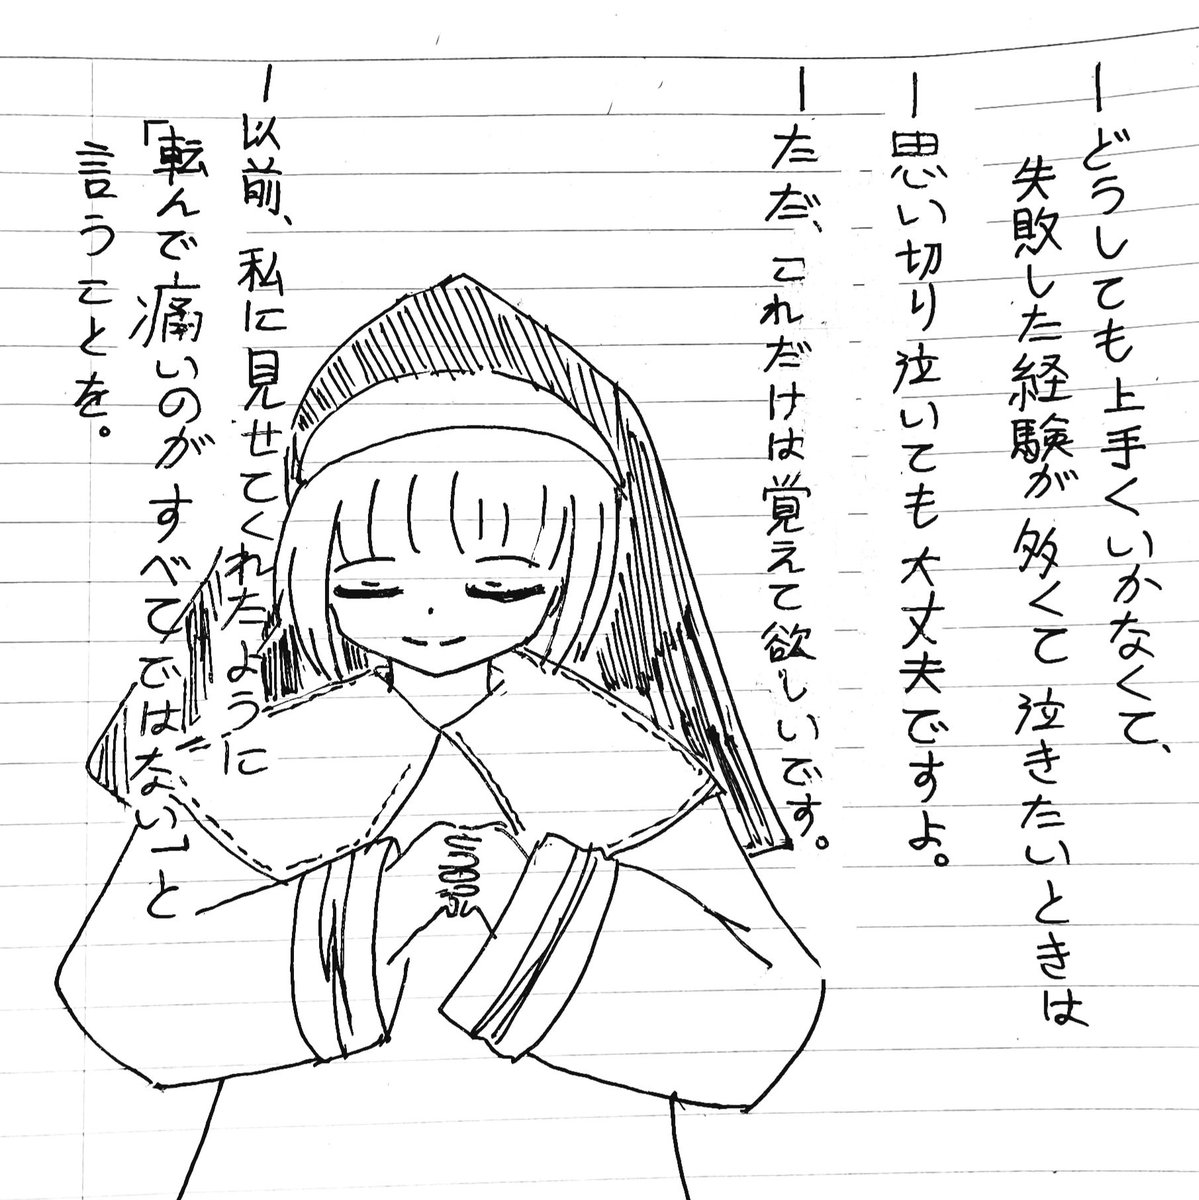 ーどうしても上手くいかなくて、
失敗した経験が多くて泣きたいときは
ー思い切り泣いても大丈夫ですよ。
ーただ、これだけは覚えて欲しいです。
ー以前、私に見せてくれたように
「転んで痛いのがすべてではない」と
言うことを。